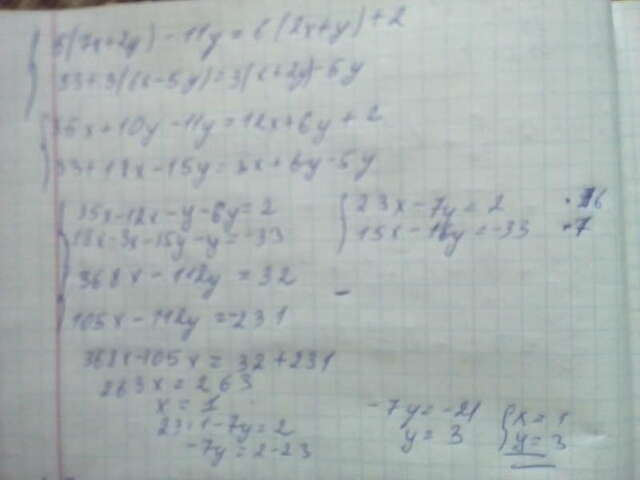 5(7x+2y)-11y=6(2x+y)+2
33+3(6x-5y)=3(x+2y)-5y
35x+10y-11y=12x+6y+2
33+18x-15y=3x+6y-5y
35x-12x-y-6y=2
18x-3x-15y-y=-33
23x-7y=2 ·16
15x-16y=-33 ·7
368x-112y=32
105x-112y=-231
368x-105x=32+231
263x=263
x=1
23·1-7y=2
-7y=2-23
-7y=-21
y=3
x=1
y=3